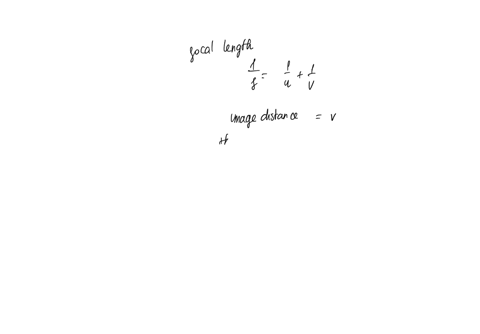 focal length
1/f = 1/u + 1/v
image distance = v
If